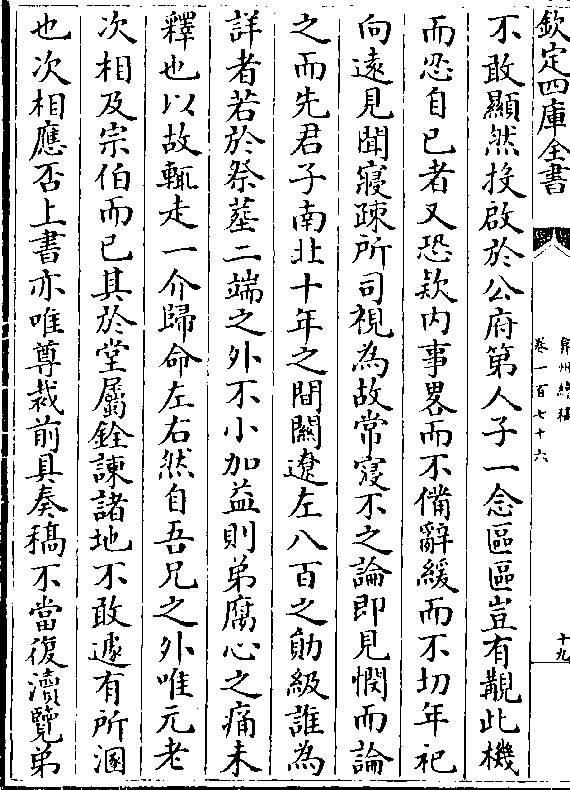 欽定四庫全書
弇州續稿
卷一百七十六
十九
不敢顯然投啟於公府第人子一念區區豈有覩此機
而忍自已者又恐欵内事畧而不備辭緩而不切年祀
向遠見聞寢踈所司視為故常寘不之論即見憫而論
之而先君子南北十年之間闗遼左八百之勛級誰為
詳者若於祭塟二端之外不小加益則弟腐心之痛未
釋也以故輒走一介歸命左右然自吾兄之外唯元老
次相及宗伯而已其於堂屬銓諫諸地不敢遽有所溷
也次相應否上書亦唯尊裁前具奏稿不當復瀆覽弟